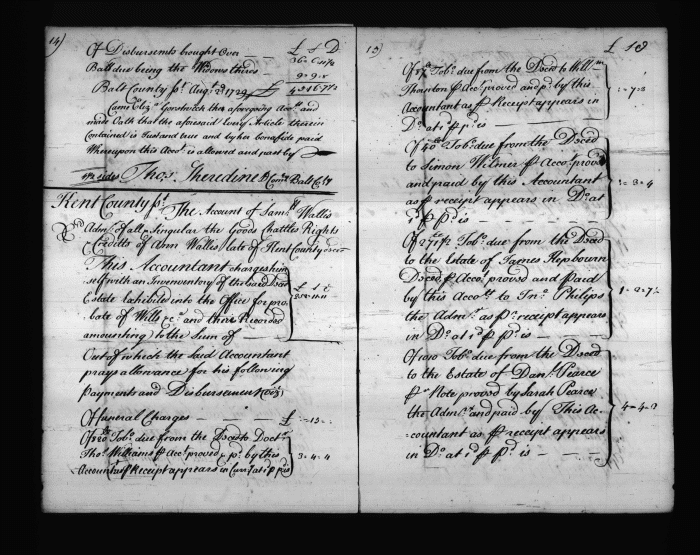 14)
Of Disbursemts brought Over — £ s D
Ball due being the Widows thirds
9. 9. 2
Balt County ss. Augt 2d 1729
Came Eliz: Gorswhick this aforegoing Accot and
made Oath that the aforesaid Every Article therein
Contained is Just and true and by her bonafide paid
Whereupon this Acco: is allowed and past by
Thos: Sheredine D Comy Balt Coty
Kent County ss. The Account of Samll Wallis
Admr of all & Singular the Goods Chattles Rights
& Creditts of Ann Wallis late of Kent County decd
This Accountant charges him
self with an Inventory of the said Decd
Estate Exhibited into the Office for pro
bate of Wills &c: and there Recorded
amounting to the Sum of —
£ s d
Out of which the said Accountant
prays allowance for his following
Payments and Disbursements (Viz)
Of funeral Charges — — — £
Of 820 lb Tobo: due from the Decd to Doctr
Tho: Williams p Acco: proved & pd by this
Accountant p Receipt appears in
3 = 4 = 4
15)
£ s d
Of Tobo: due from the Decd to Will:m
Thornton p Acco: proved and pd by this
Accountant as p Receipt appears in
Do at 1d p lb is
Of 40 Tobo: due from the Decd
to Simon Wilmer p Acco: proved
and paid by this Accountant
as p receipt appears in Do at
1d p lb is — — —
3 = 3 = 4
Of 271 lb Tobo: due from the Decd
to the Estate of James Hepbourn
Decd p Acco: proved and Paid
by this Accot to Jno: Philips
the Admr as p receipt appears
in Do at 1d p lb is —
1 = 2 = 7
Of 1010 Tobo: due from the Decd
to the Estate of Danl: Pearce
p Note proved by Sarah Pearce
the Admx and paid by This Ac=
=countant as p receipt appears
in Do at 1d p lb is — — —
4 = 4 = 2